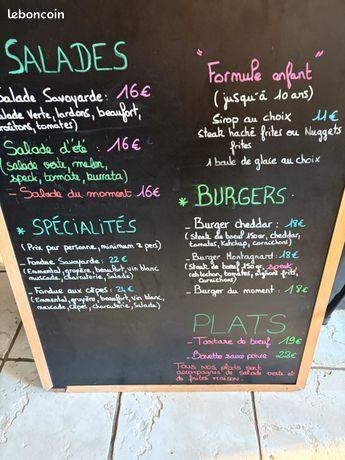 leboncoin
SALADES
Salade Savoyarde: 16€
Salade Verte, lardons, beaufort,
croûtons, tomates)
Salade d'été: 16€
(salade verte, melon,
speck, tomate, burrata)
- Salade du moment 16€
* SPÉCIALITÉS
(Prix par personne, minimum 2 pers)
- Fondue Savoyarde: 22€
(Emmental, gruyère, beaufort, vin blanc
muscade, charcuterie, Salade)
- Fondue aux cèpes: 24€
(Emmental, gruyère, beaufort, vin blanc,
muscade, cèpes, charcuterie, Salade)
"Formule enfant"
(jusqu'à 10 ans)
Sirop au choix 11€
steak haché frites ou Nuggets
frites
1 boule de glace au choix
* BURGERS
- Burger cheddar: 18€
(Steak de boeuf 150gr, cheddar,
tomates, ketchup, cornichons)
- Burger Montagnard: 18€
(Steak de boeuf 150gr, speck,
reblochon, tomates, oignons frits,
cornichons)
- Burger du moment: 18€
PLATS
- Tartare de boeuf 19€
- Bavette sauce poivre 22€
Tous nos plats sont
accompagnés de salade verte et
de frites maison.